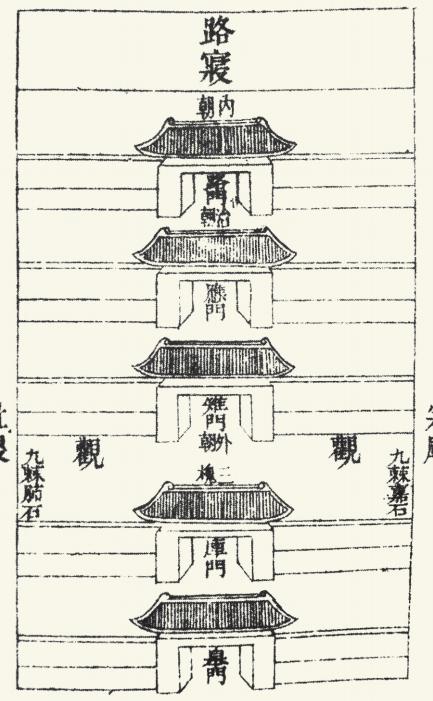 路寢
內朝
路門
治朝
應門
雉門
外朝
觀
觀
三槐
九棘嘉石
九棘肺石
庫門
皐門